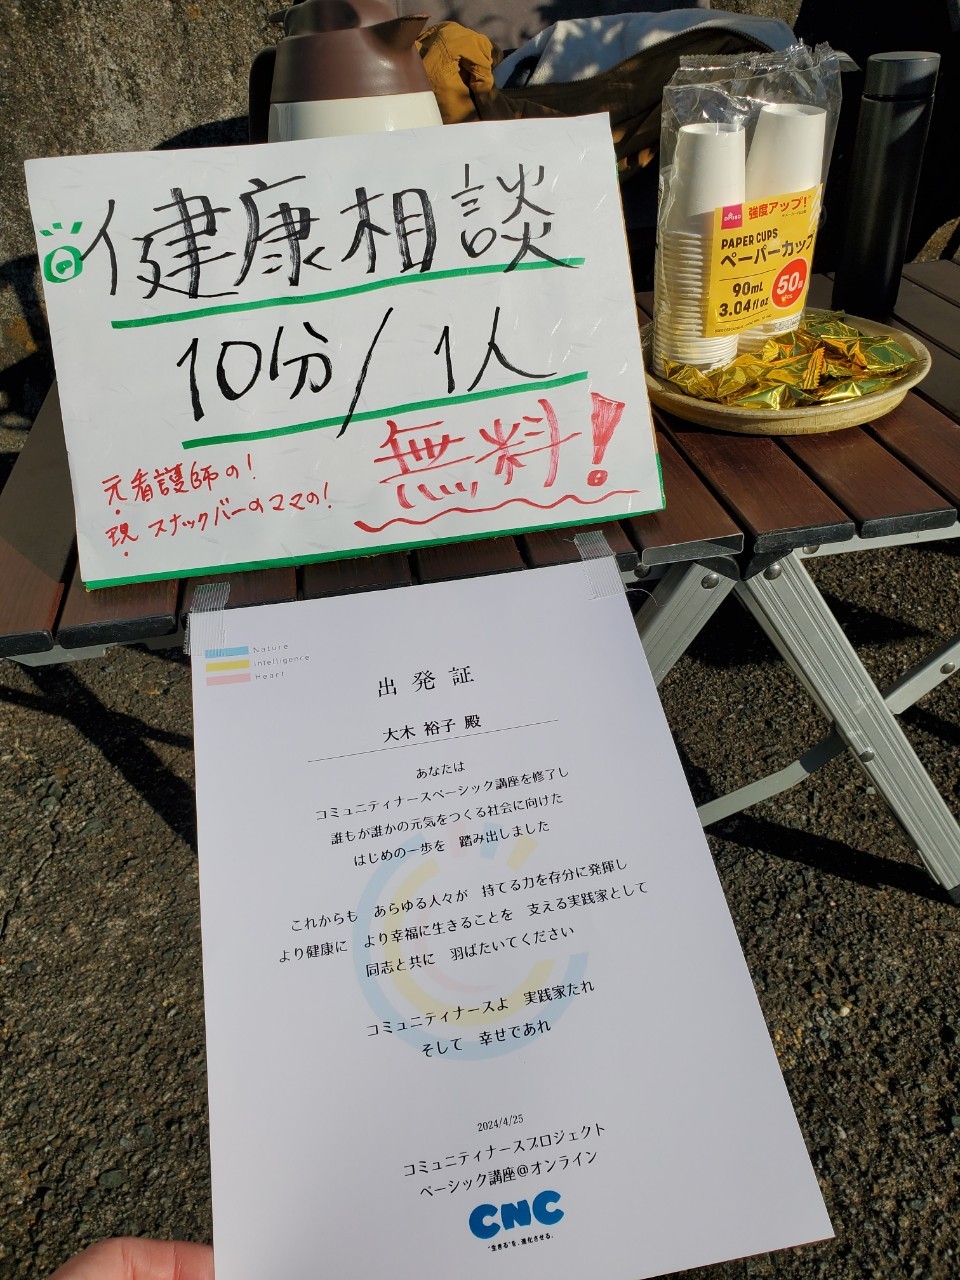 健康相談
10分/1人
無料!
元看護師の!
現スナックバーのママの!
DAISO
強度アップ!
PAPER CUPS
ペーパーカップ
90mL
3.04fl oz
50個
Nature
Intelligence
Heart
出発証
大木 裕子 殿
あなたは
コミュニティナースベーシック講座を修了し
誰もが誰かの元気をつくる社会に向けた
はじめの一歩を 踏み出しました
これからも あらゆる人々が 持てる力を存分に発揮し
より健康に より幸福に生きることを 支える実践家として
同志と共に 羽ばたいてください
コミュニティナースよ 実践家たれ
そして 幸せであれ
2024/4/25
コミュニティナースプロジェクト
ベーシック講座@オンライン
CNC
"生きる"を、進化させる。